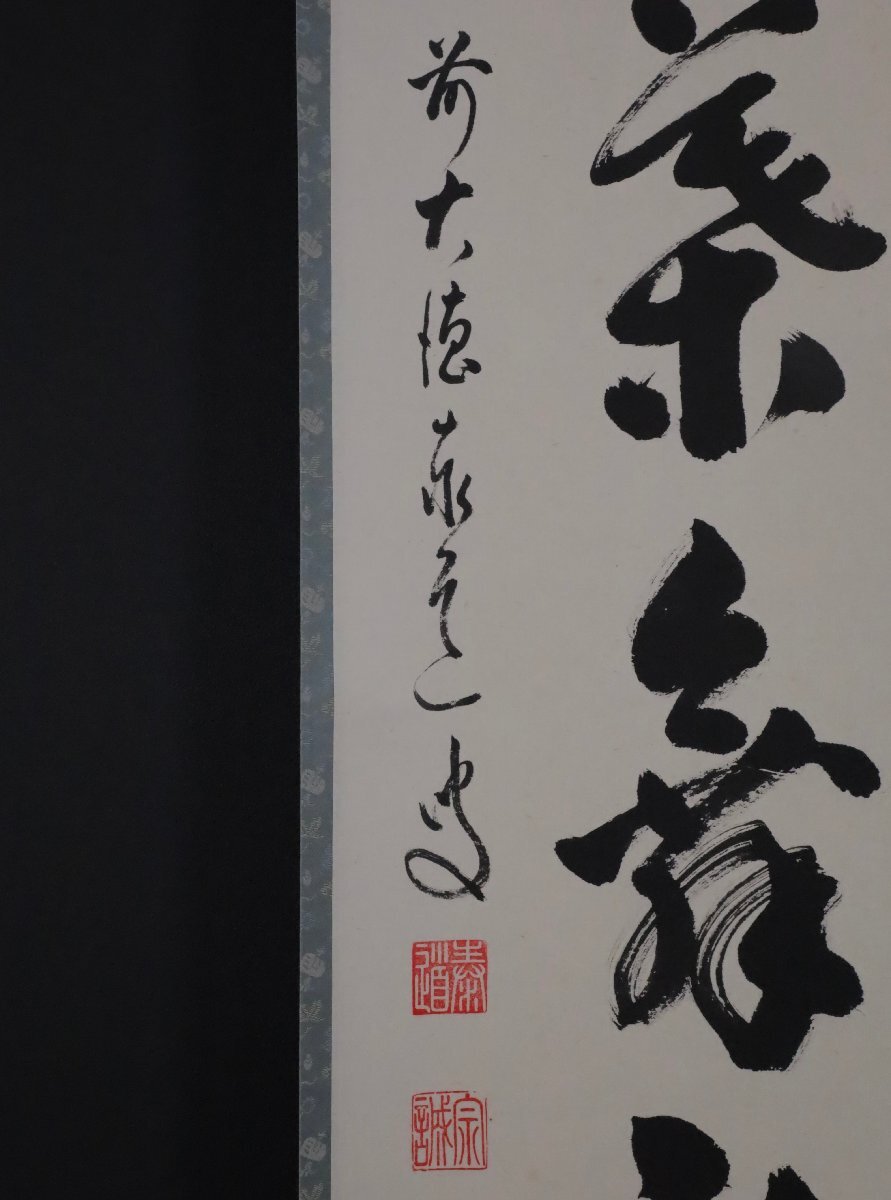 葉舞
前大徳泰道叟
泰道
宗誠